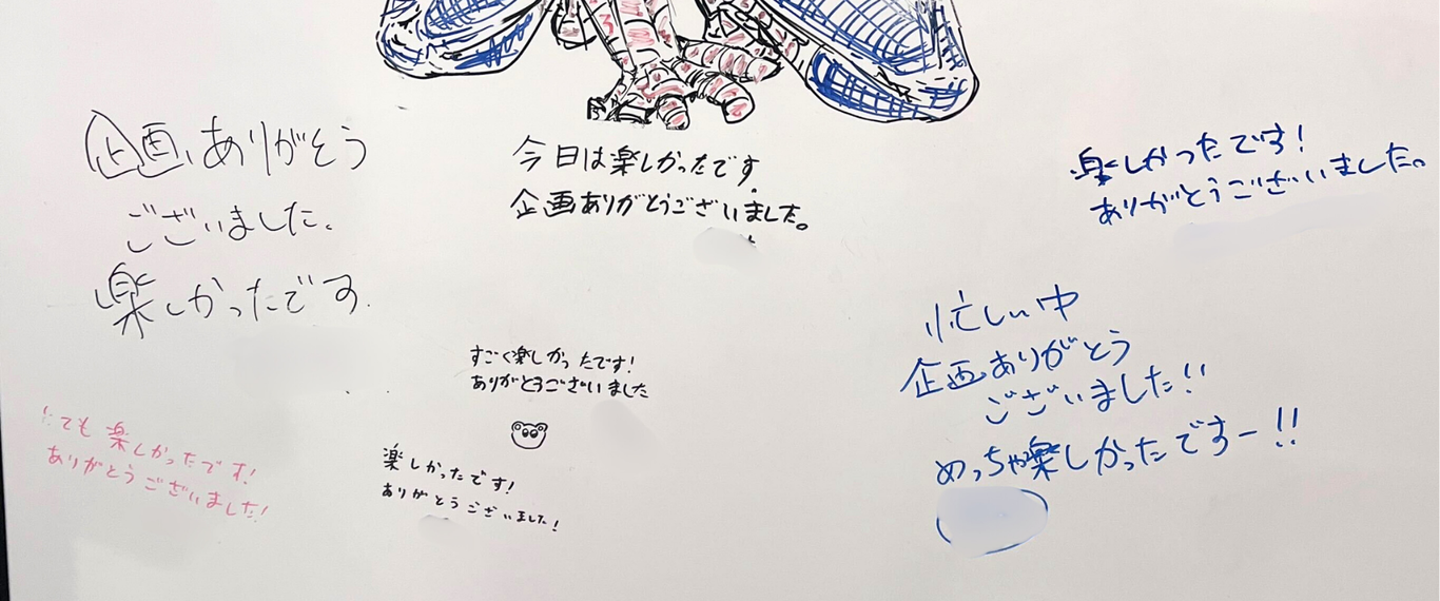 企画、ありがとう
ございました.
楽しかったです.
今日は楽しかったです.
企画ありがとうございました。
楽しかったです!
ありがとうございました。
すごく楽しかったです!
ありがとうございました
忙しい中
企画ありがとう
ございました!!
めっちゃ楽しかったですー!!
とても楽しかったです!
ありがとうございました!
楽しかったです!
ありがとうございました!